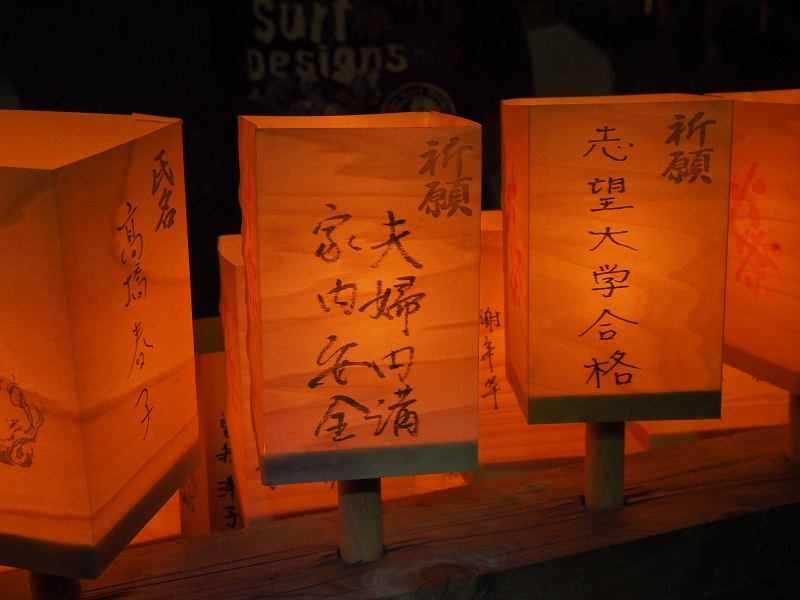 Surf
Designs
氏名
高橋春子
祈願
夫婦円満
家内安全
祈願
志望大学合格
火祭